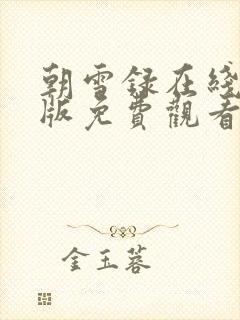 朝雪録在綫
版免費觀看
金玉蓉